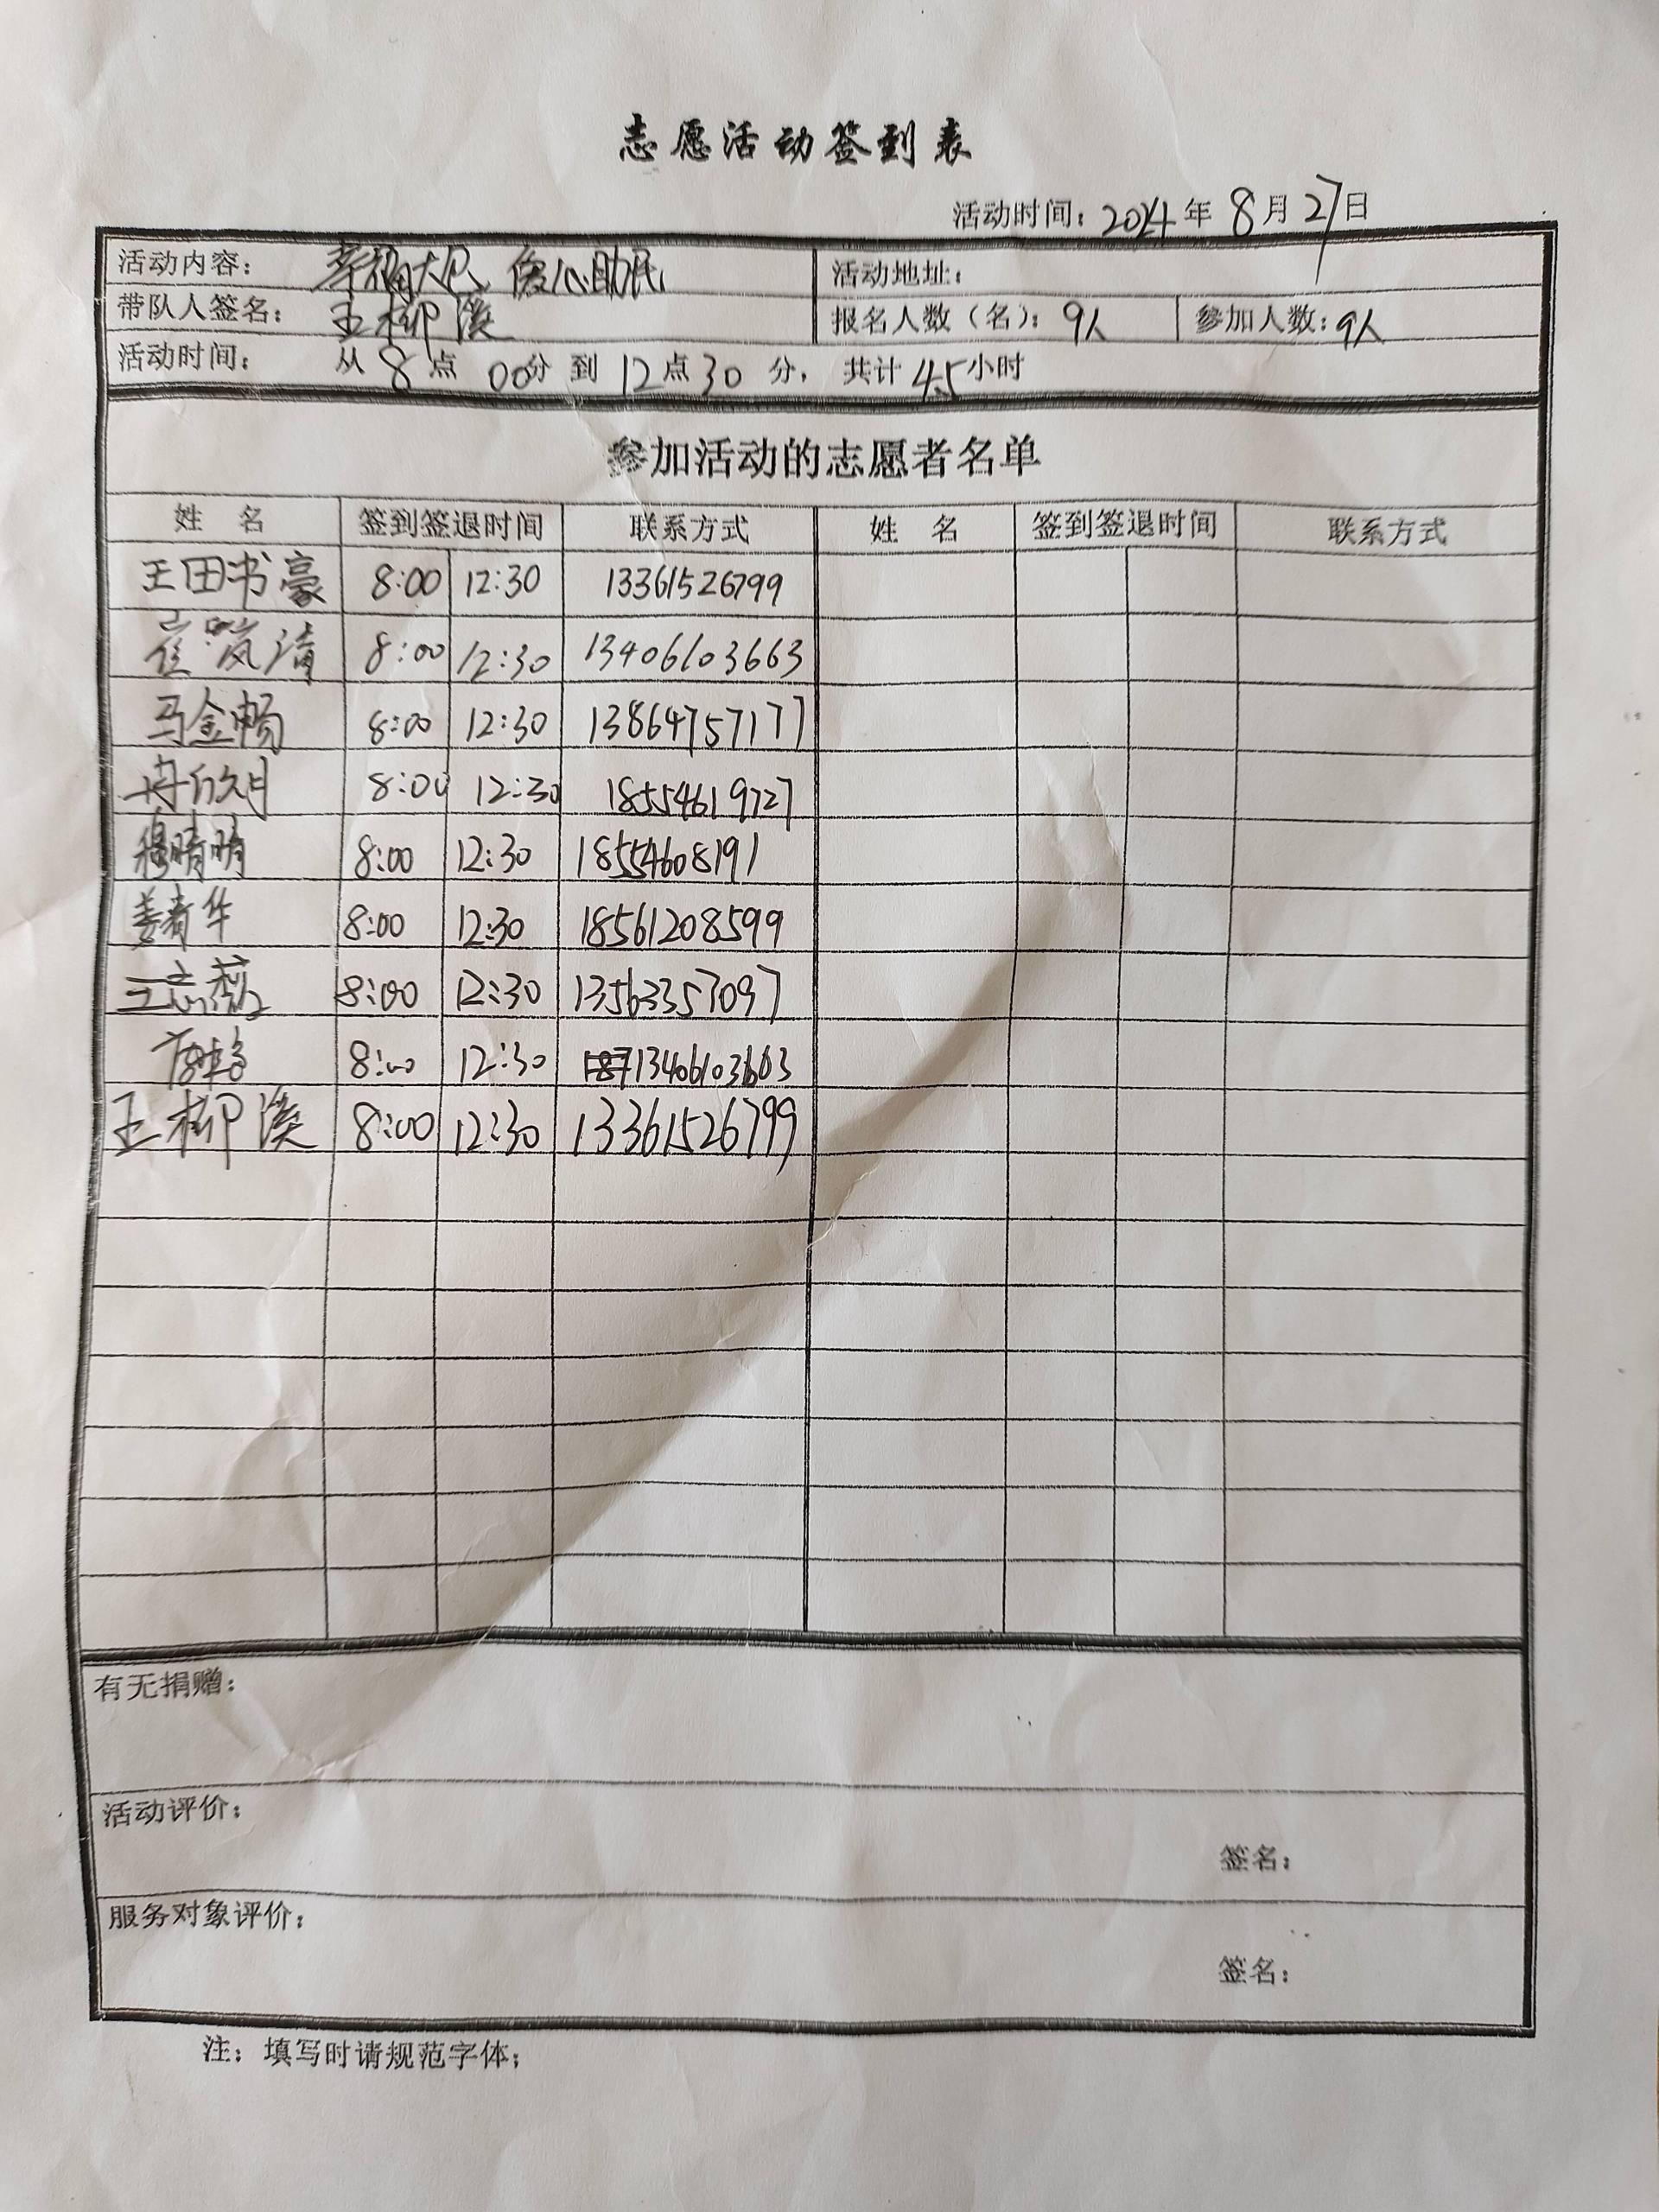 志愿活动签到表
活动时间：2024年8月27日
活动内容：幸福大巴 爱心助民 活动地址：
带队人签名：王柳溪 报名人数（名）：9人 参加人数：9人
活动时间： 从8点00分到12点30分，共计4.5小时
参加活动的志愿者名单
姓 名 签到签退时间 联系方式 姓 名 签到签退时间 联系方式
王田书豪 8:00 12:30 13361526799
崔岚清 8:00 12:30 13406103663
马金畅 8:00 12:30 13864757177
冉欣月 8:00 12:30 18554619727
穆晴晴 8:00 12:30 18554608191
姜青华 8:00 12:30 18561208599
王志 8:00 12:30 13563357097
8:00 12:30 13406103663
王柳溪 8:00 12:30 13361526799
有无捐赠：
活动评价：
签名：
服务对象评价：
签名：
注：填写时请规范字体；